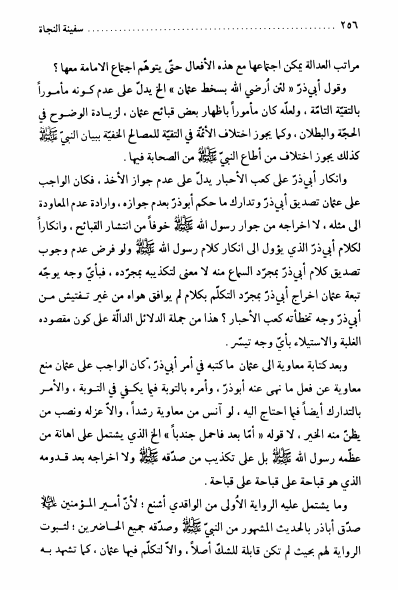 ٢٥٦ ........................................ سفينة النجاة
مراتب العدالة يمكن اجتماعها مع هذه الأفعال حتّى يتوهّم اجتماع الامامة معها ؟
وقول أبي‌ذرّ « لئن اُرضي الله بسخط عثمان » الخ يدلّ على عدم كونه مأموراً
بالتقيّة التامّة ، ولعلّه كان مأموراً باظهار بعض قبائح عثمان ، لزيادة الوضوح في
الحجّة والبطلان ، وكما يجوز اختلاف الأئمّة في التقيّة للمصالح الخفيّة ببيان النبيّ ﷺ
كذلك يجوز اختلاف من أطاع النبيّ ﷺ من الصحابة فيها .
وانكار أبي‌ذرّ على كعب الأحبار يدلّ على عدم جواز الأخذ ، فكان الواجب
على عثمان تصديق أبي‌ذرّ وتدارك ما حكم أبوذرّ بعدم جوازه ، وارادة عدم المعاودة
الى مثله ، لا اخراجه من جوار رسول الله ﷺ خوفاً من انتشار القبائح ، وانكاراً
لكلام أبي‌ذرّ الذي يؤول الى انكار كلام رسول الله ﷺ ولو فرض عدم وجوب
تصديق كلام أبي‌ذرّ بمجرّد السماع منه لا معنى لتكذيبه بمجرّده ، فبأيّ وجه يوجّه
تبعة عثمان اخراج أبي‌ذرّ بمجرد التكلّم بكلام لم يوافق هواه من غير تفتيش مـن
أبي‌ذرّ وجه تخطأته كعب الأحبار ؟ هذا من جملة الدلائل الدالّة على كون مقصوده
الغلبة والاستيلاء بأيّ وجه تيسّر .
وبعد كتابة معاوية الى عثمان ما كتبه في أمر أبي‌ذرّ ، كان الواجب على عثمان منع
معاوية عن فعل ما نهى عنه أبوذرّ ، وأمره بالتوبة فيما يكـفي في التـوبة ، والأمـر
بالتدارك أيضاً فيما احتاج اليه ، لو آنس من معاوية رشداً ، والاّ عزله ونصب من
يظنّ منه الخير ، لا قوله « أمّا بعد فاحمل جندباً » الخ الذي يشتمل على اهانة من
عظّمه رسول الله ﷺ بل على تكذيب من صدّقه ﷺ ولا اخراجه بعد قدومه
الذي هو قباحة على قباحة على قباحة .
وما يشتمل عليه الرواية الأولى من الواقدي أشنع ؛ لأنّ أمـير المـؤمنين ﷺ
صدّق أباذر بالحديث المشهور من النبيّ ﷺ وصدّقه جميع الحـاضرين ؛ لثـبوت
الرواية لهم بحيث لم تكن قابلة للشكّ أصلاً ، والاّ لتكلّم فيها عثمان ، كما تشهد بـه